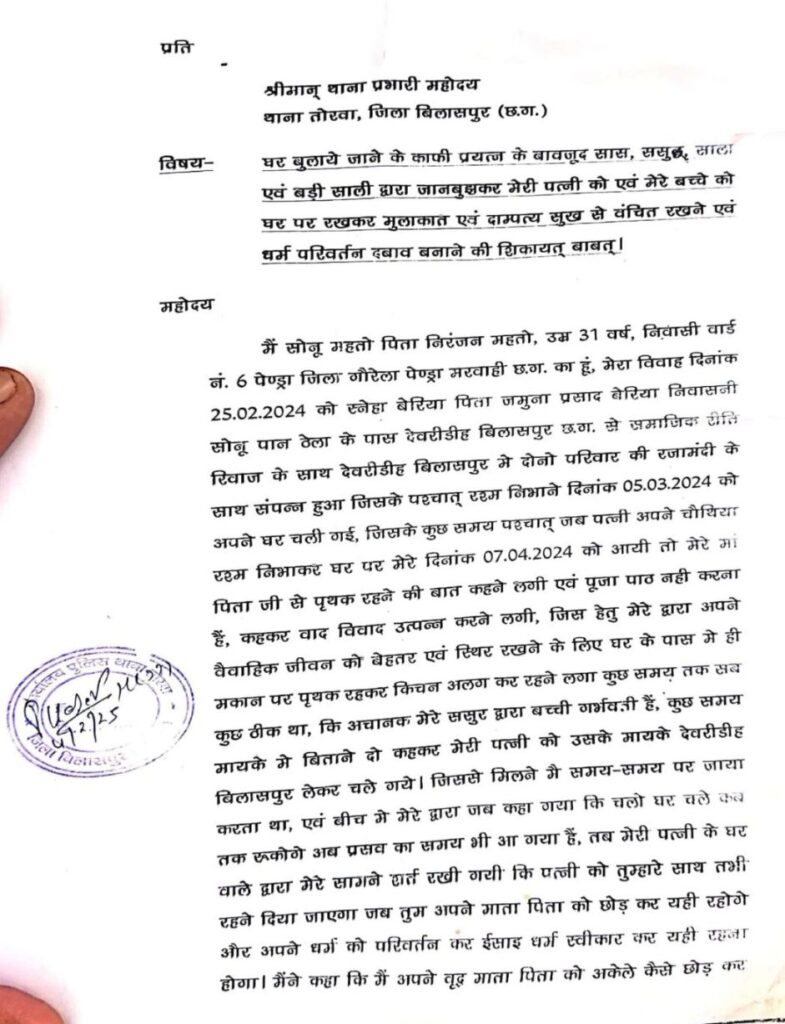 प्रति
श्रीमान् थाना प्रभारी महोदय
थाना तोरवा, जिला बिलासपुर (छ.ग.)
विषय– घर बुलाये जाने के काफी प्रयत्न के बावजूद सास, ससुर, साला
एवं बड़ी साली द्वारा जानबुझकर मेरी पत्नी को एवं मेरे बच्चे को
घर पर रखकर मुलाकात एवं दाम्पत्य सुख से वंचित रखने एवं
धर्म परिवर्तन दबाव बनाने की शिकायत् बाबत्।
महोदय
मैं सोनू महतो पिता निरंजन महतो, उम्र 31 वर्ष, निवासी वार्ड
नं. 6 पेण्ड्रा जिला गौरेला पेण्ड्रा मरवाही छ.ग. का हूं, मेरा विवाह दिनांक
25.02.2024 को स्नेहा बेरिया पिता जमुना प्रसाद बेरिया निवासनी
सोनू पान ठेला के पास देवरीडीह बिलासपुर छ.ग. से समाजिक रीति
रिवाज के साथ देवरीडीह बिलासपुर मे दोनो परिवार की रजामंदी के
साथ संपन्न हुआ जिसके पश्चात् रश्म निभाने दिनांक 05.03.2024 को
अपने घर चली गई, जिसके कुछ समय पश्चात् जब पत्नी अपने चौथिया
रश्म निभाकर घर पर मेरे दिनांक 07.04.2024 को आयी तो मेरे मां
पिता जी से पृथक रहने की बात कहने लगी एवं पूजा पाठ नही करना
हैं, कहकर वाद विवाद उत्पन्न करने लगी, जिस हेतु मेरे द्वारा अपने
वैवाहिक जीवन को बेहतर एवं स्थिर रखने के लिए घर के पास मे ही
मकान पर पृथक रहकर किचन अलग कर रहने लगा कुछ समय तक सब
कुछ ठीक था, कि अचानक मेरे ससुर द्वारा बच्ची गर्भवती हैं, कुछ समय
मायके मे बिताने दो कहकर मेरी पत्नी को उसके मायके देवरीडीह
बिलासपुर लेकर चले गये। जिससे मिलने मै समय-समय पर जाया
करता था, एवं बीच मे मेरे द्वारा जब कहा गया कि चलो घर चले कब
तक रूकोगे अब प्रसव का समय भी आ गया हैं, तब मेरी पत्नी के घर
वाले द्वारा मेरे सामने शर्त रखी गयी कि पत्नी को तुम्हारे साथ तभी
रहने दिया जाएगा जब तुम अपने माता पिता को छोड़ कर यही रहोगे
और अपने धर्म को परिवर्तन कर ईसाइ धर्म स्वीकार कर यही रहना
होगा। मैंने कहा कि मैं अपने वृद्व माता पिता को अकेले कैसे छोड़ कर
पुलिस थाना
जिला बिलासपुर